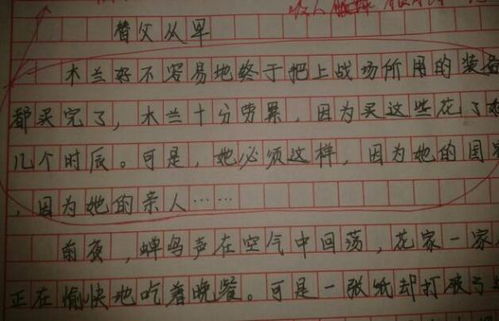 替父从军
木兰好不容易地终于把上战场所用的装备
都买完了，木兰十分劳累，因为买这些花了她
几个时辰。可是，她必须这样，因为她的国家
，因为她的亲人……
前夜，蝉鸟声在空气中回荡，花家一家
正在愉快地吃着晚餐。可是一张纸却打破了